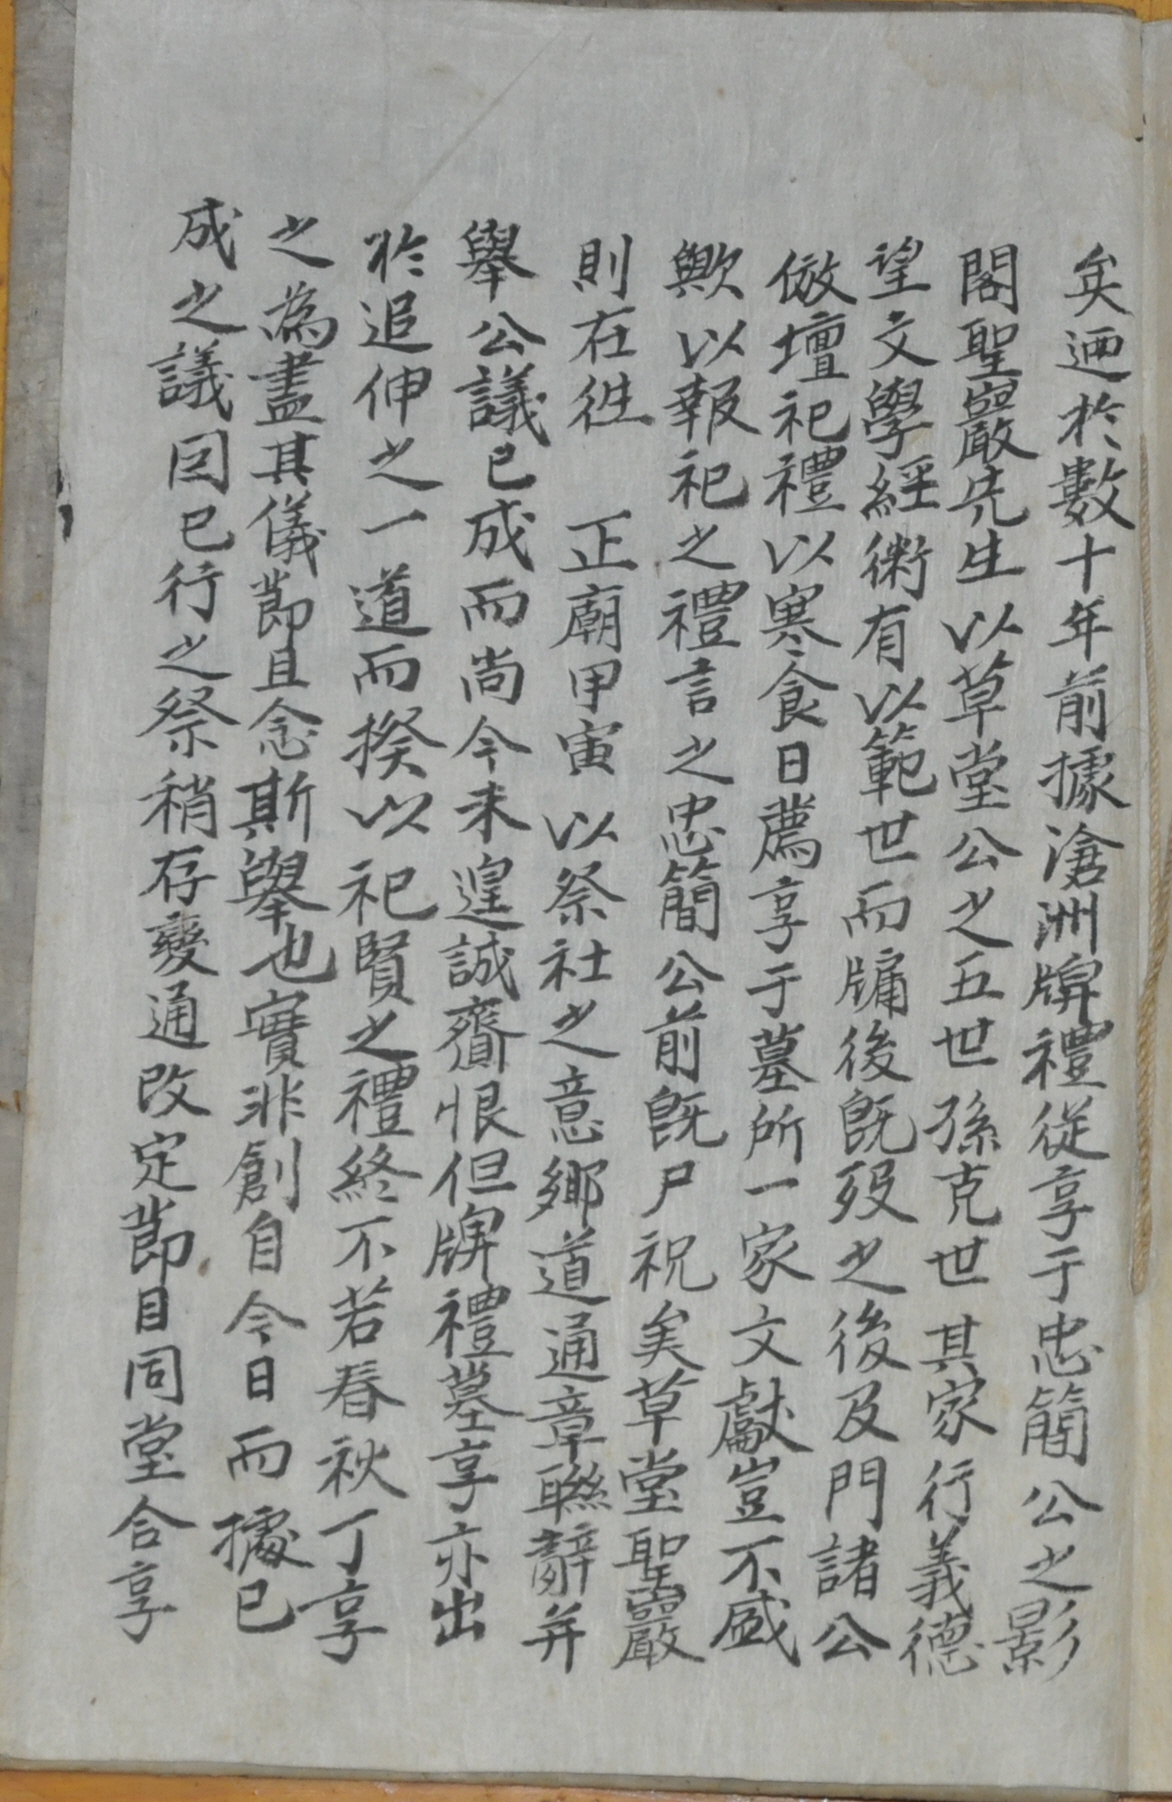 矣迺於數十年前據滄洲牌禮從享于忠簡公之影
閣聖巖先生以草堂公之五世孫克世其家行義德
望文學經術有以範世而牖後旣歿之後及門諸公
倣壇祀禮以寒食日薦享于墓所一家文獻豈不盛
歟以報祀之禮言之忠簡公前旣尸祝矣草堂聖巖
則在徃 正廟甲寅以祭社之意鄕道通章聯辭并
擧公議已成而尚今未遑誠齎恨但牌禮墓享亦出
於追伸之一道而揆以祀賢之禮終不若春秋丁享
之為盡其儀節且念斯擧也實非創自今日而據已
成之議因已行之祭稍存變通改定節目同堂合享